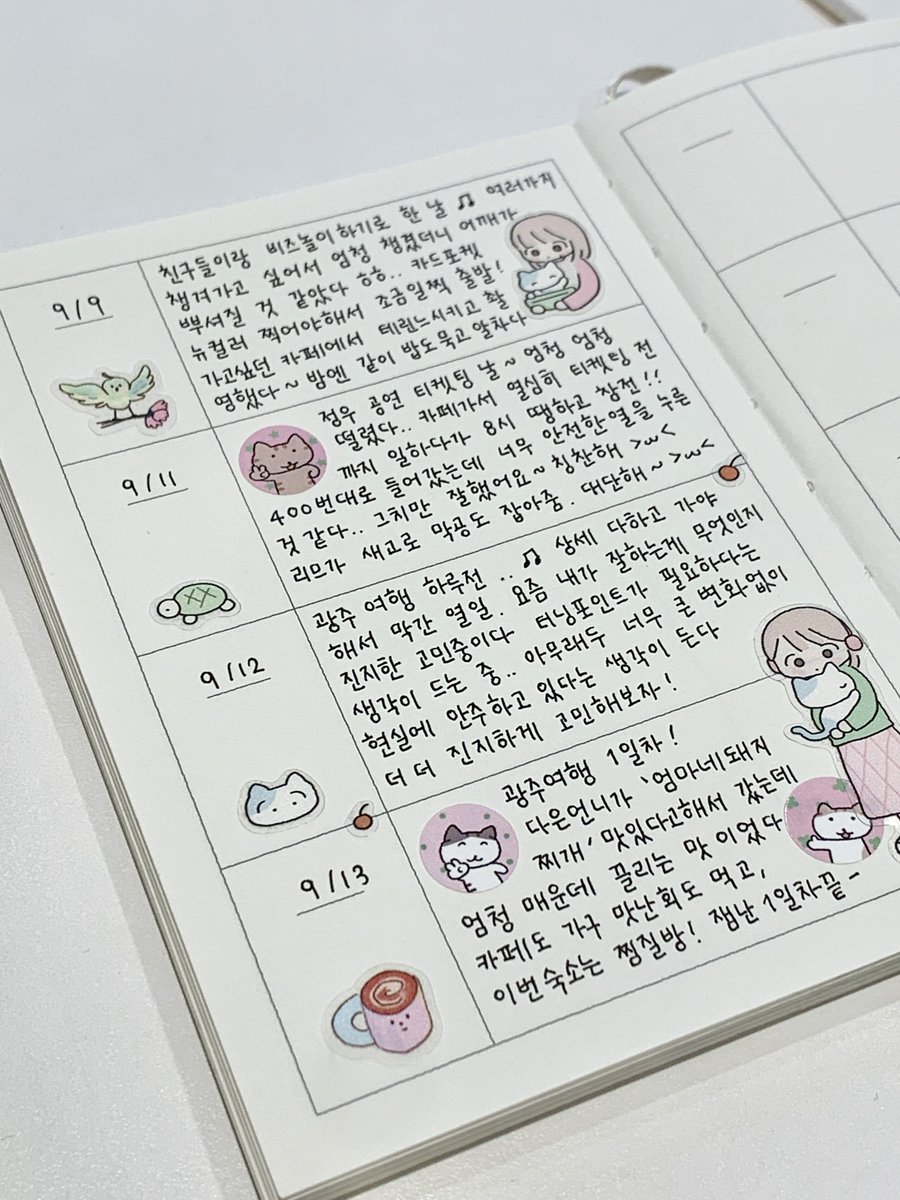 9/9
친구들이랑 비즈놀이하기로 한 날 ♫ 여러가지
챙겨가고 싶어서 엄청 챙겼더니 어깨가
뿌셔질 것 같았다 ㅎㅎ.. 카드포켓
뉴컬러 찍어야해서 조금일찍 출발!
가고싶던 카페에서 테린느시키고 촬
영했다~ 밤엔 같이 밥도묵고 알차다
9/11
정우 공연 티켓팅 날~ 엄청 엄청
떨렸다.. 카페가서 열심히 티켓팅 전
까지 일하다가 8시 땡하고 참전!!
400번대로 들어갔는데 너무 안전한열을 누른
것 같다.. 그치만 잘했어요~ 칭찬해 >ω<
리므가 새고로 막공도 잡아줌. 대단해~ >ω<
9/12
광주 여행 하루전 ..♫ 상세 다하고 가야
해서 막간 열일. 요즘 내가 잘하는게 무엇인지
진지한 고민중이다 터닝포인트가 필요하다는
생각이 드는 중.. 아무래두 너무 큰 변화없이
현실에 안주하고 있다는 생각이 든다
더 더 진지하게 고민해보자!
9/13
광주여행 1일차!
다은언니가 '엄마네돼지
찌개' 맛있다고해서 갔는데
엄청 매운데 끌리는 맛이었다
카페도 가구 맛난회도 먹고,
이번숙소는 찜질방! 잼난1일차끝-